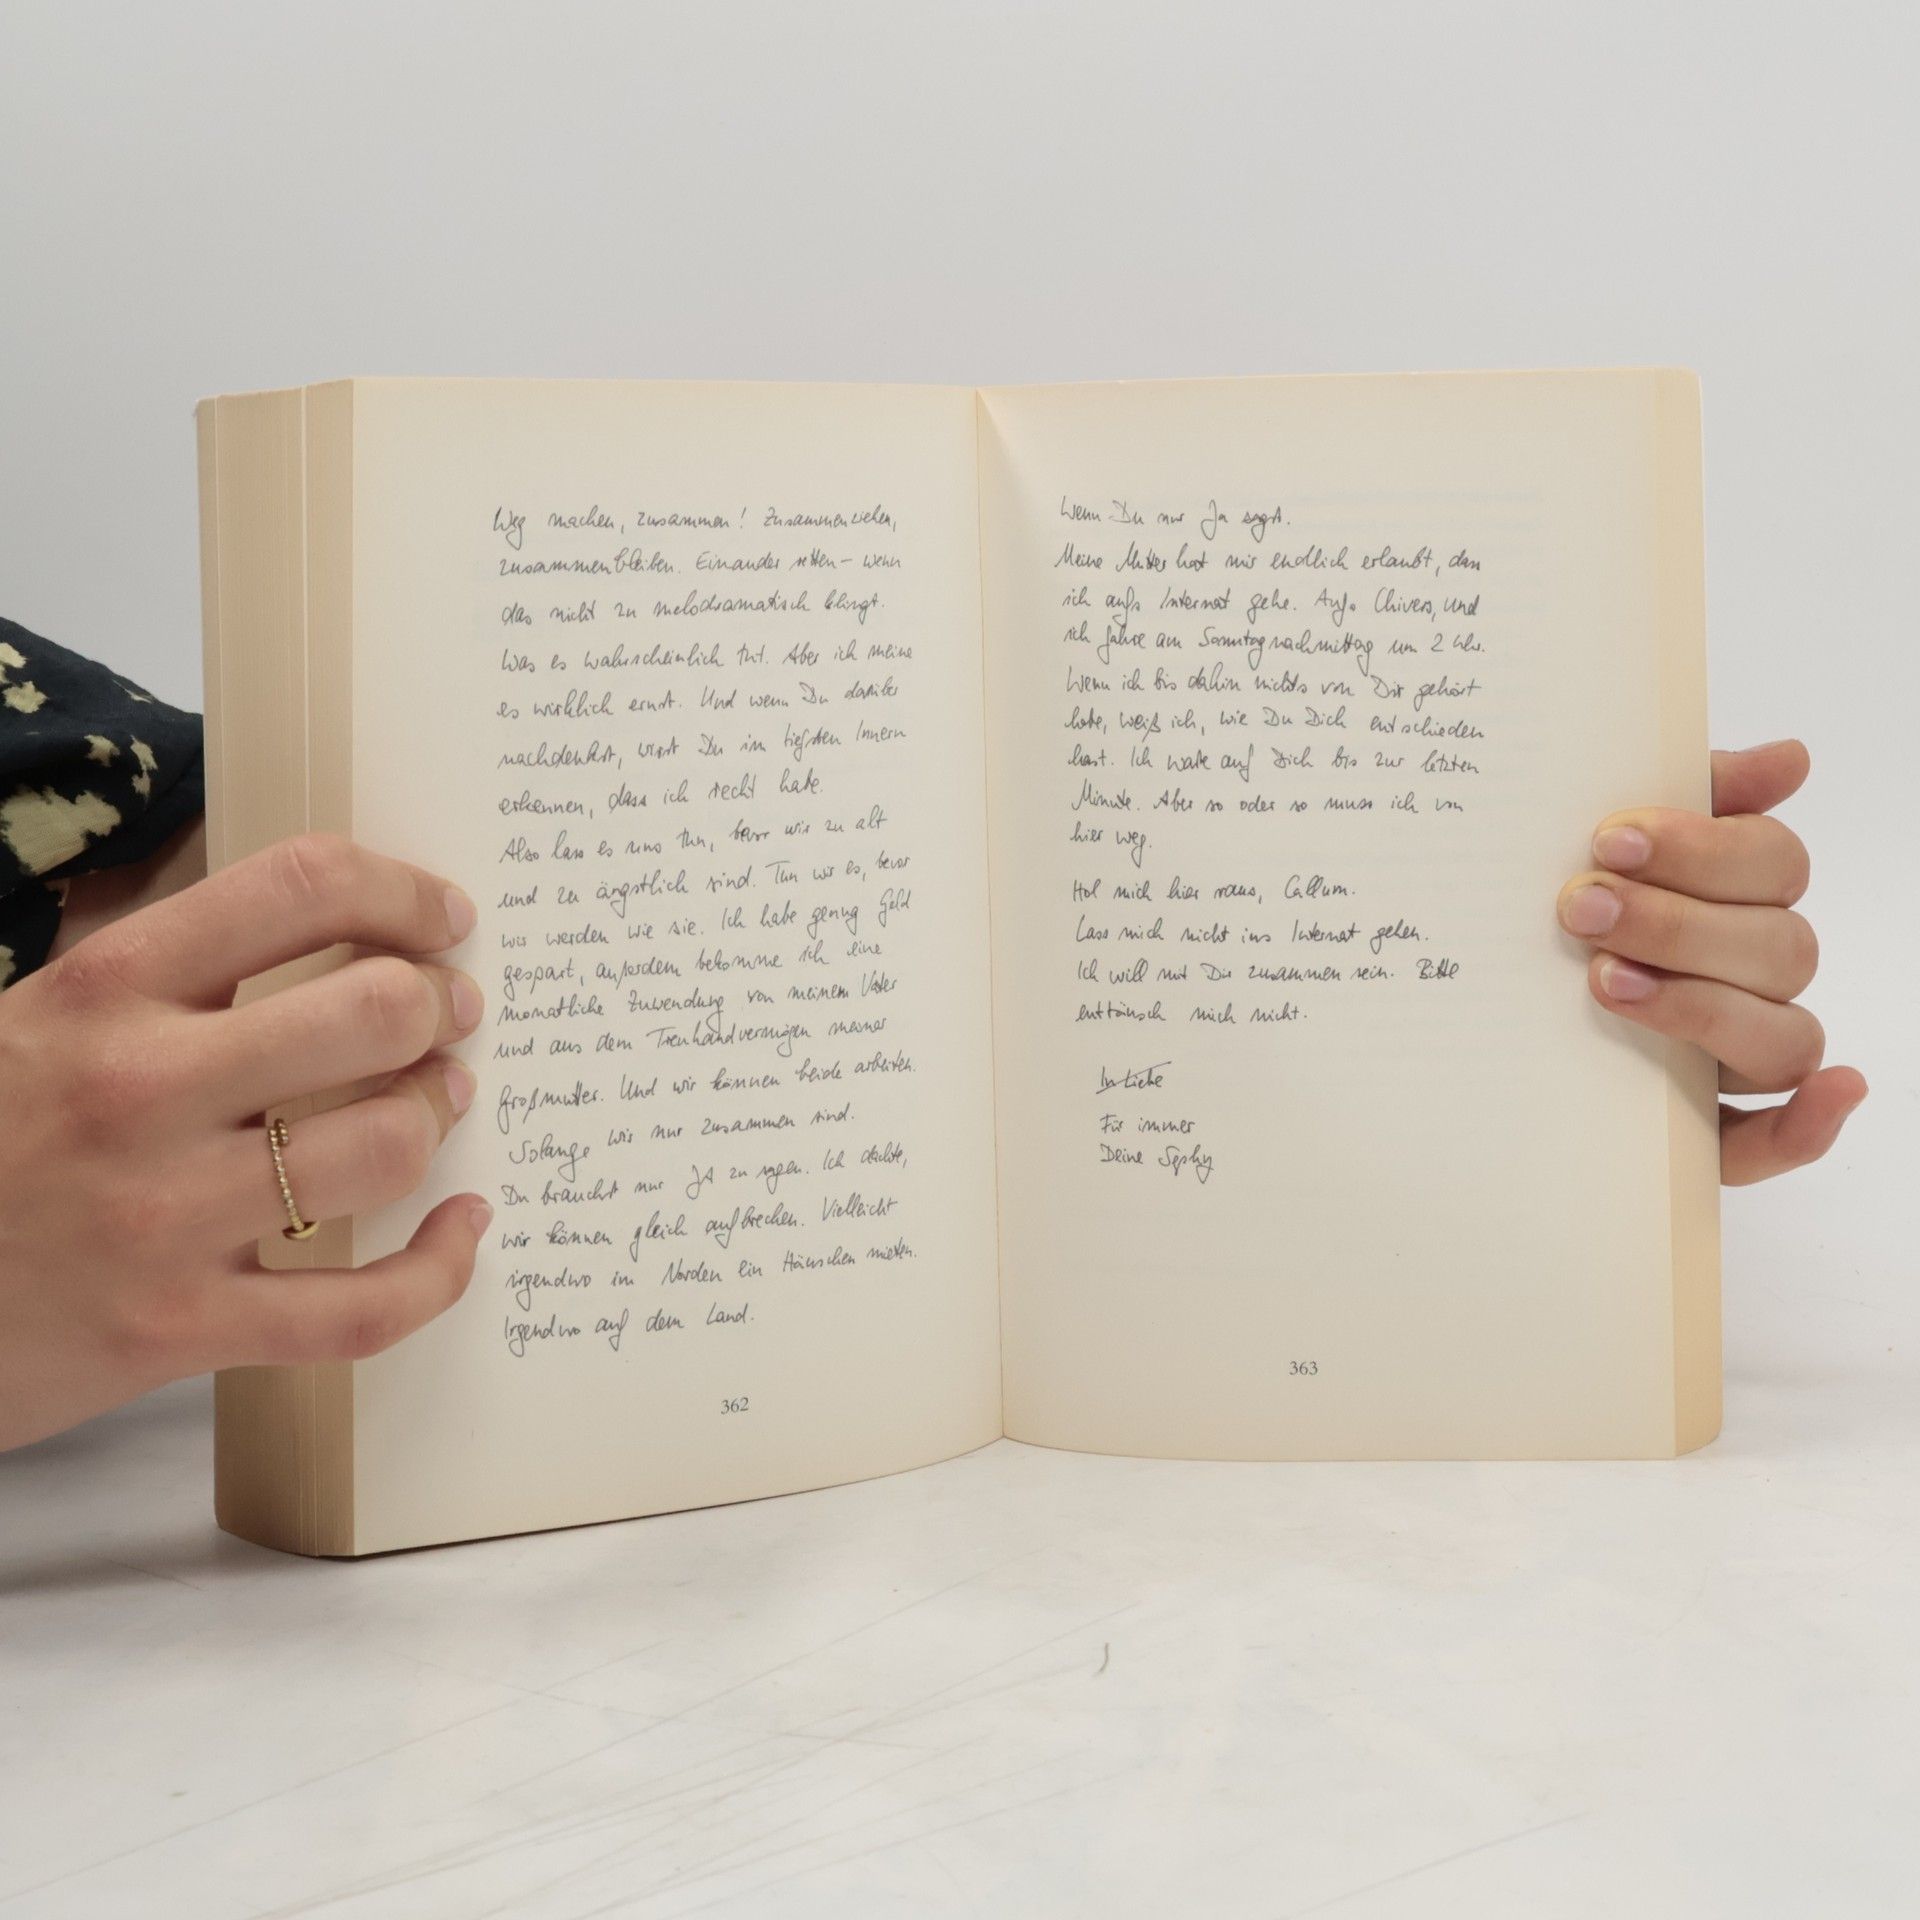 Weg machen, zusammen! Zusammenziehen,
zusammenbleiben. Einander retten – wenn
das nicht zu melodramatisch klingt.
Was es wahrscheinlich tut. Aber ich meine
es wirklich ernst. Und wenn Du darüber
nachdenkst, wirst Du im tiefsten Innern
erkennen, dass ich recht habe.
Also lass es uns tun, bevor wir zu alt
und zu ängstlich sind. Tun wir es, bevor
wir werden wie sie. Ich habe genug Geld
gespart, außerdem bekomme ich eine
monatliche Zuwendung von meinem Vater
und aus dem Treuhandvermögen meiner
Großmutter. Und wir können beide arbeiten.
Solange wir nur zusammen sind.
Du brauchst nur JA zu sagen. Ich dachte,
wir können gleich aufbrechen. Vielleicht
irgendwo im Norden ein Häuschen mieten.
Irgendwo auf dem Land.
362
Wenn Du nur Ja sagst.
Meine Mutter hat mir endlich erlaubt, dass
ich aufs Internat gehe. Aufs Chivers, und
ich fahre am Sonntagnachmittag um 2 Uhr.
Wenn ich bis dahin nichts von Dir gehört
habe, weiß ich, wie Du Dich entschieden
hast. Ich warte auf Dich bis zur letzten
Minute. Aber so oder so muss ich von
hier weg.
Hol mich hier raus, Callum.
Lass mich nicht ins Internat gehen.
Ich will mit Dir zusammen sein. Bitte
enttäusch mich nicht.
In Liebe
Für immer
Deine Sephy
363